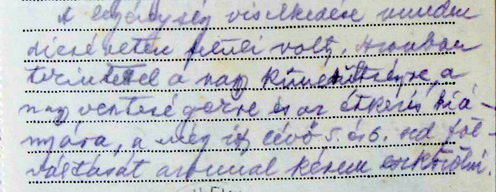 A legénység viselkedése minden
dicséreten felüli volt. Azonban
tekintettel a nagy kimerültségre a
nagy veszteségekre és az étkezés hiá-
nyára, a még itt lévő 5. és 6. szd föl-
váltását azonnal kérem eszközölni.